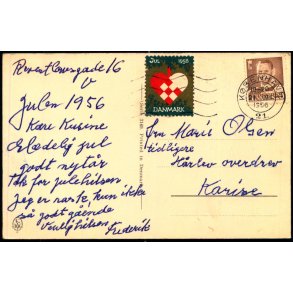 Reventlowsgade 16
V
Julen 1956
Kære Kusine
Glædelig jul
godt nytår
tak for julehilsen
Jeg er rask, kun ikke
så godt gående
Venlig hilsen
Frederik
JUL 1956
DANMARK
KØBENHAVN
1956
21
Fru Marie Olsen
Hårlev overdrev
Karise